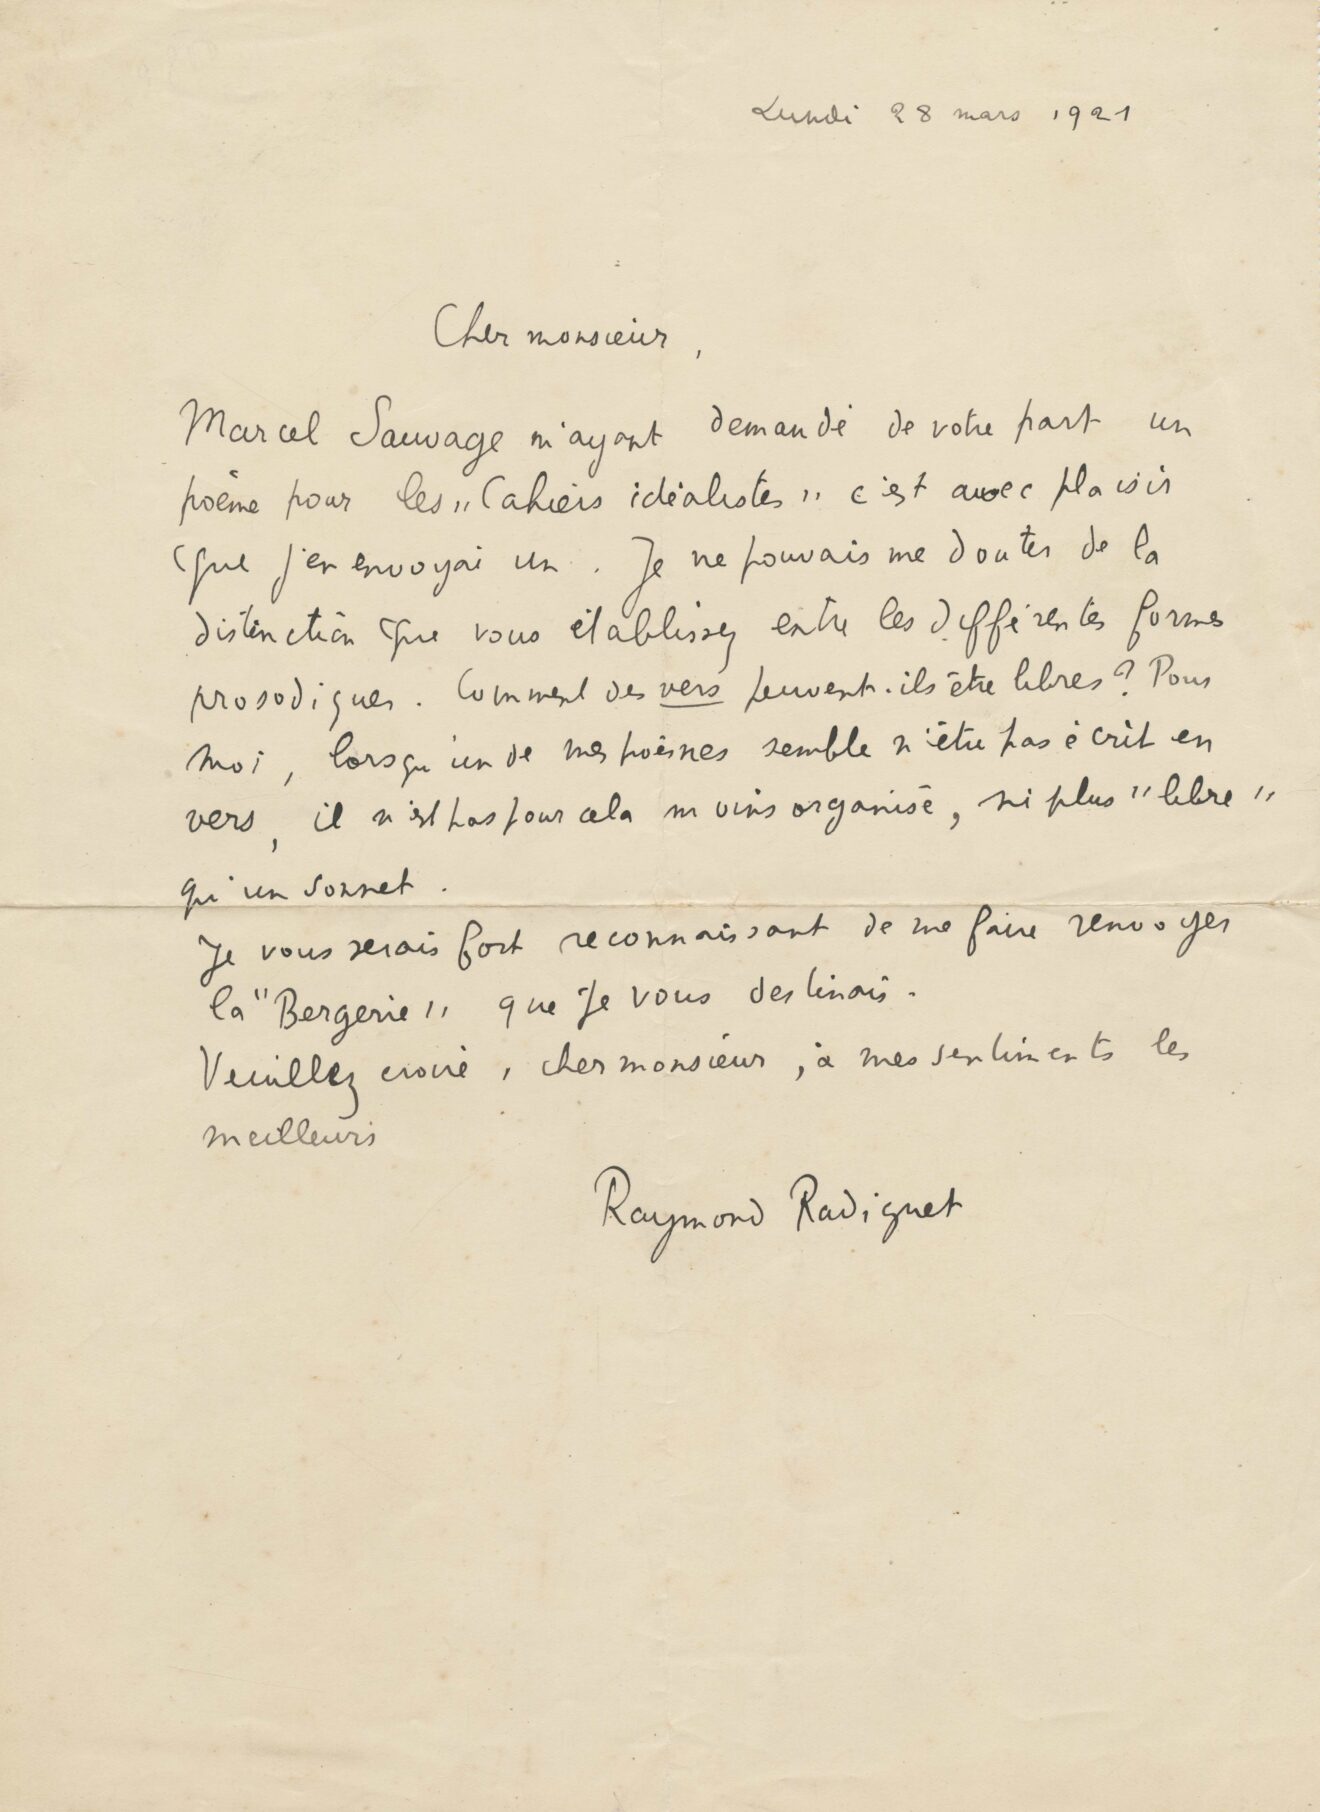 Lundi 28 mars 1921
Cher monsieur,
Marcel Sauvage m'ayant demandé de votre part un
poème pour les "Cahiers idéalistes" c'est avec plaisir
que j'en envoyai un. Je ne pouvais me douter de la
distinction que vous établissez entre les différentes formes
prosodiques. Comment des vers peuvent-ils être libres? Pour
moi, lorsqu'un de mes poèmes semble n'être pas écrit en
vers, il n'est pas pour cela moins organisé, ni plus "libre"
qu'un sonnet.
Je vous serais fort reconnaissant de me faire renvoyer
la "Bergerie" que je vous destinais.
Veuillez croire, cher monsieur, à mes sentiments les
meilleurs
Raymond Radiguet